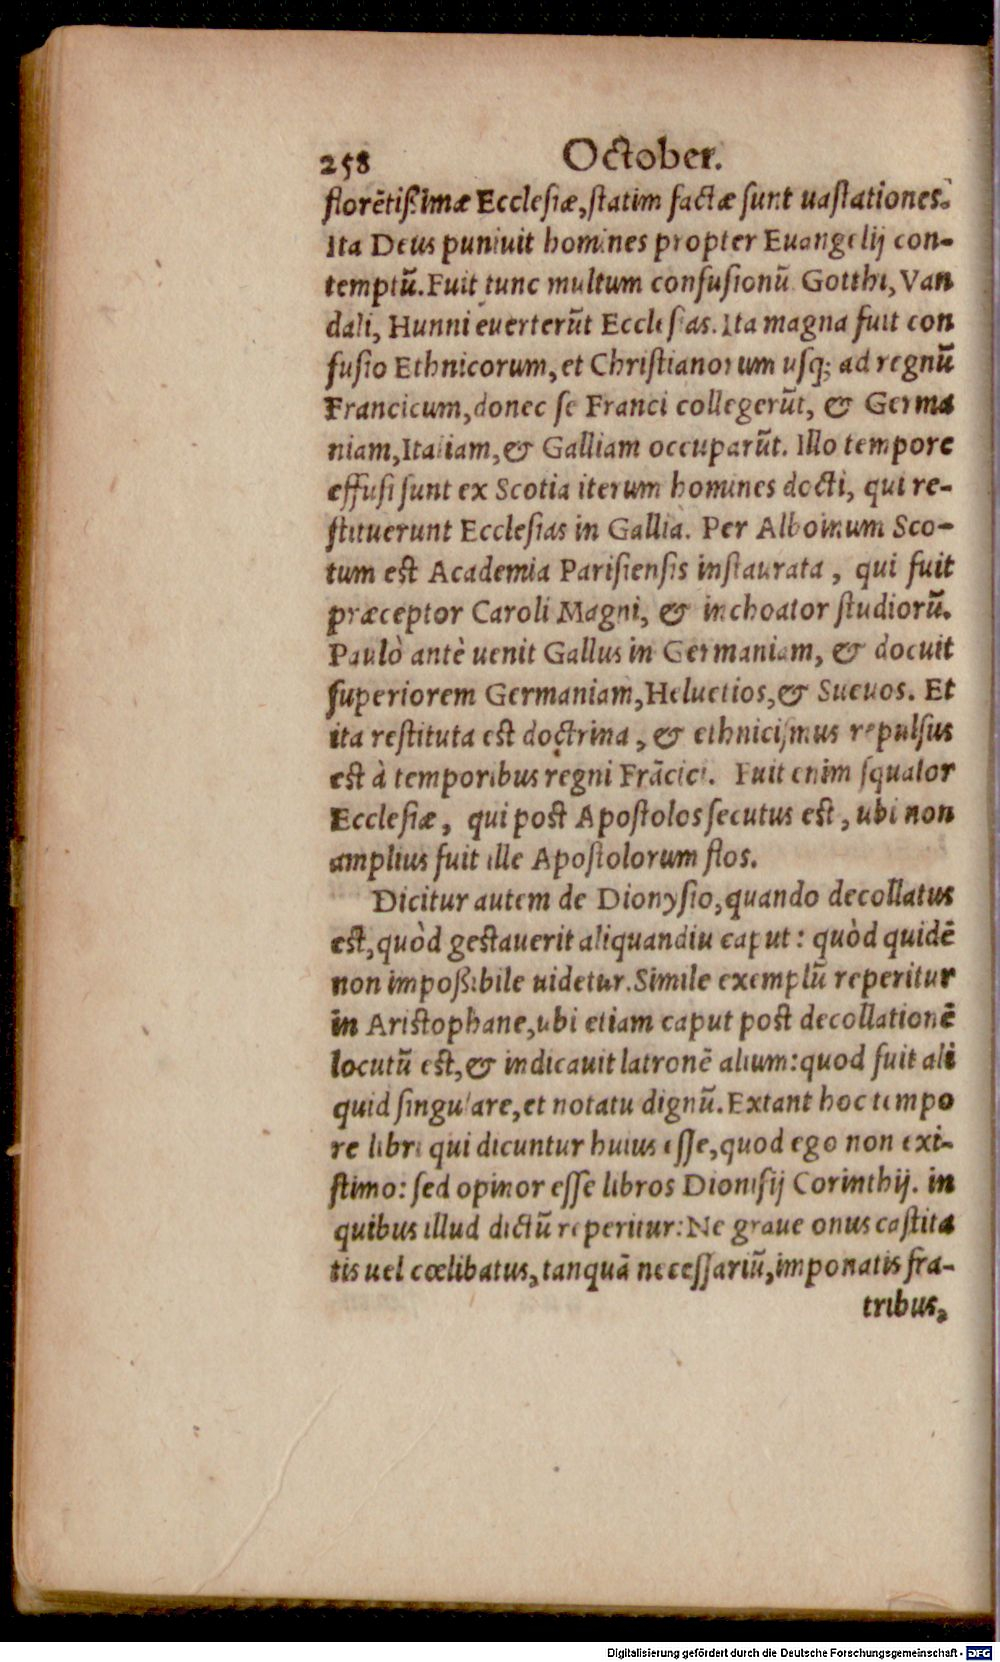 258 October.
florẽtißimæ Ecclesiæ, ſtatim factæ ſunt uaſtationes.
Ita Deus puniuit homines propter Euangelij con-
temptũ. Fuit tunc multum confuſionũ Gotthi, Van
dali, Hunni euerterũt Eccleſias. Ita magna fuit con
fuſio Ethnicorum, et Chriſtianorum uſq; ad regnũ
Francicum, donec ſe Franci collegerũt, & Germa
niam, Italiam, & Galliam occuparũt. Illo tempore
effuſi ſunt ex Scotia iterum homines docti, qui re-
ſtituerunt Eccleſias in Gallia. Per Alboinum Sco-
tum eſt Academia Pariſienſis inſtaurata, qui fuit
præceptor Caroli Magni, & inchoator ſtudiorũ.
Paulò antè uenit Gallus in Germaniam, & docuit
ſuperiorem Germaniam, Heluetios, & Sueuos. Et
ita reſtituta eſt doctrina, & ethniciſmus repulſus
eſt à temporibus regni Frãcici. Fuit enim ſqualor
Eccleſiæ, qui poſt Apoſtolos ſecutus eſt, ubi non
amplius fuit ille Apoſtolorum flos.
Dicitur autem de Dionyſio, quando decollatus
eſt, quòd geſtauerit aliquandiu caput: quòd quidẽ
non impoßibile uidetur. Simile exemplũ reperitur
in Ariſtophane, ubi etiam caput poſt decollationẽ
locutũ eſt, & indicauit latronẽ alium: quod fuit ali
quid ſingulare, et notatu dignũ. Extant hoc tempo
re libri qui dicuntur huius eſſe, quod ego non exi-
ſtimo: ſed opinor eſſe libros Dioniſij Corinthij. in
quibus illud dictũ reperitur: Ne graue onus caſtita
tis uel cœlibatus, tanquã neceſſariũ, imponatis fra-
tribus,
Digitalisierung gefördert durch die Deutsche Forschungsgemeinschaft - DFG